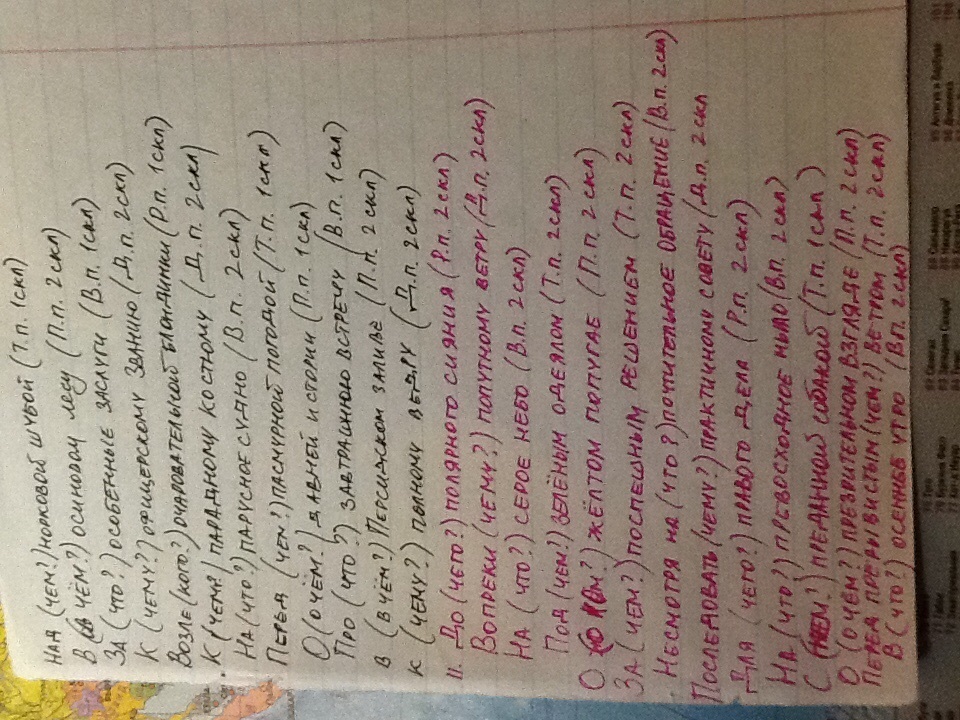 над (чем?) норковой шубой (т.п. 1скл)
в (в чём?) осиновом лесу (П.п. 2скл)
за (что?) особенные заслуги (В.п. 1скл)
к (чему?) офицерскому званию (Д.п. 2скл)
возле (кого?) очаровательной блондинки (Р.п. 1скл)
к (чему?) парадному костюму (Д.п. 2скл)
на (что?) парусное судно (В.п. 2скл)
перед (чем?) пасмурной погодой (Т.п. 1скл)
о (о чём?) давней истории (П.п. 1скл)
про (что?) завтрашнюю встречу (В.п. 1скл)
в (в чём?) Персидском заливе (П.п. 2скл)
к (чему?) полному ведру (Д.п. 2скл)
II. До (чего?) полярного сияния (Р.п. 2скл)
Вопреки (чему?) попутному ветру (Д.п. 2скл)
На (что?) серое небо (В.п. 2скл)
Под (чем?) зелёным одеялом (Т.п. 2скл)
О (ком?) жёлтом попугае (П.п. 2скл)
За (чем?) поспешным решением (Т.п. 2скл)
Несмотря на (что?) почтительное обращение (В.п. 2скл)
Последовать (чему?) практичному совету (Д.п. 2скл
Для (чего?) правого дела (Р.п. 2скл)
На (что?) превосходное мыло (В.п. 2скл)
С (кем?) преданной собакой (Т.п. 1скл)
О (о чём?) презрительном взгляде (П.п. 2скл)
Перед прерывистым (чем?) ветром (Т.п. 2скл)
В (что?) осеннее утро (Вп. 2скл)